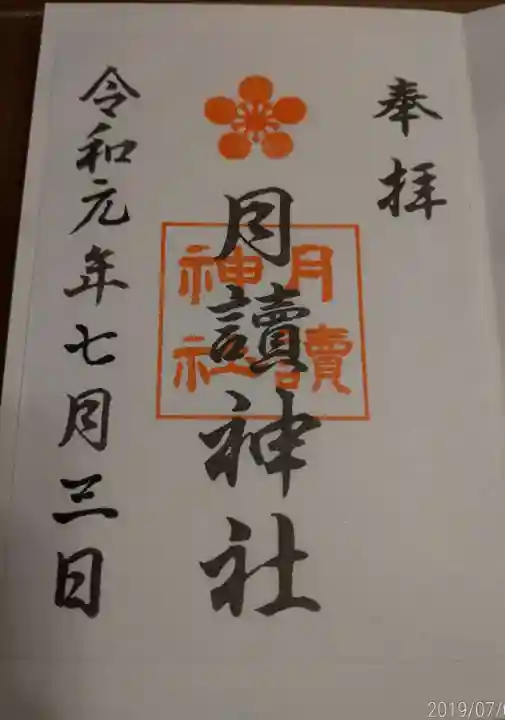 奉拝
月讀神社
月讀
神社
令和元年七月三日
2019/07/